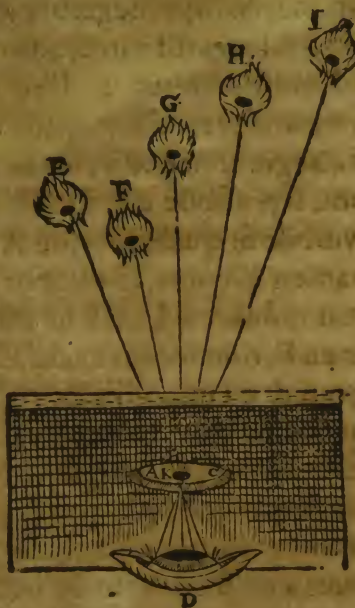 I
H.
G
E
F
A K C
D